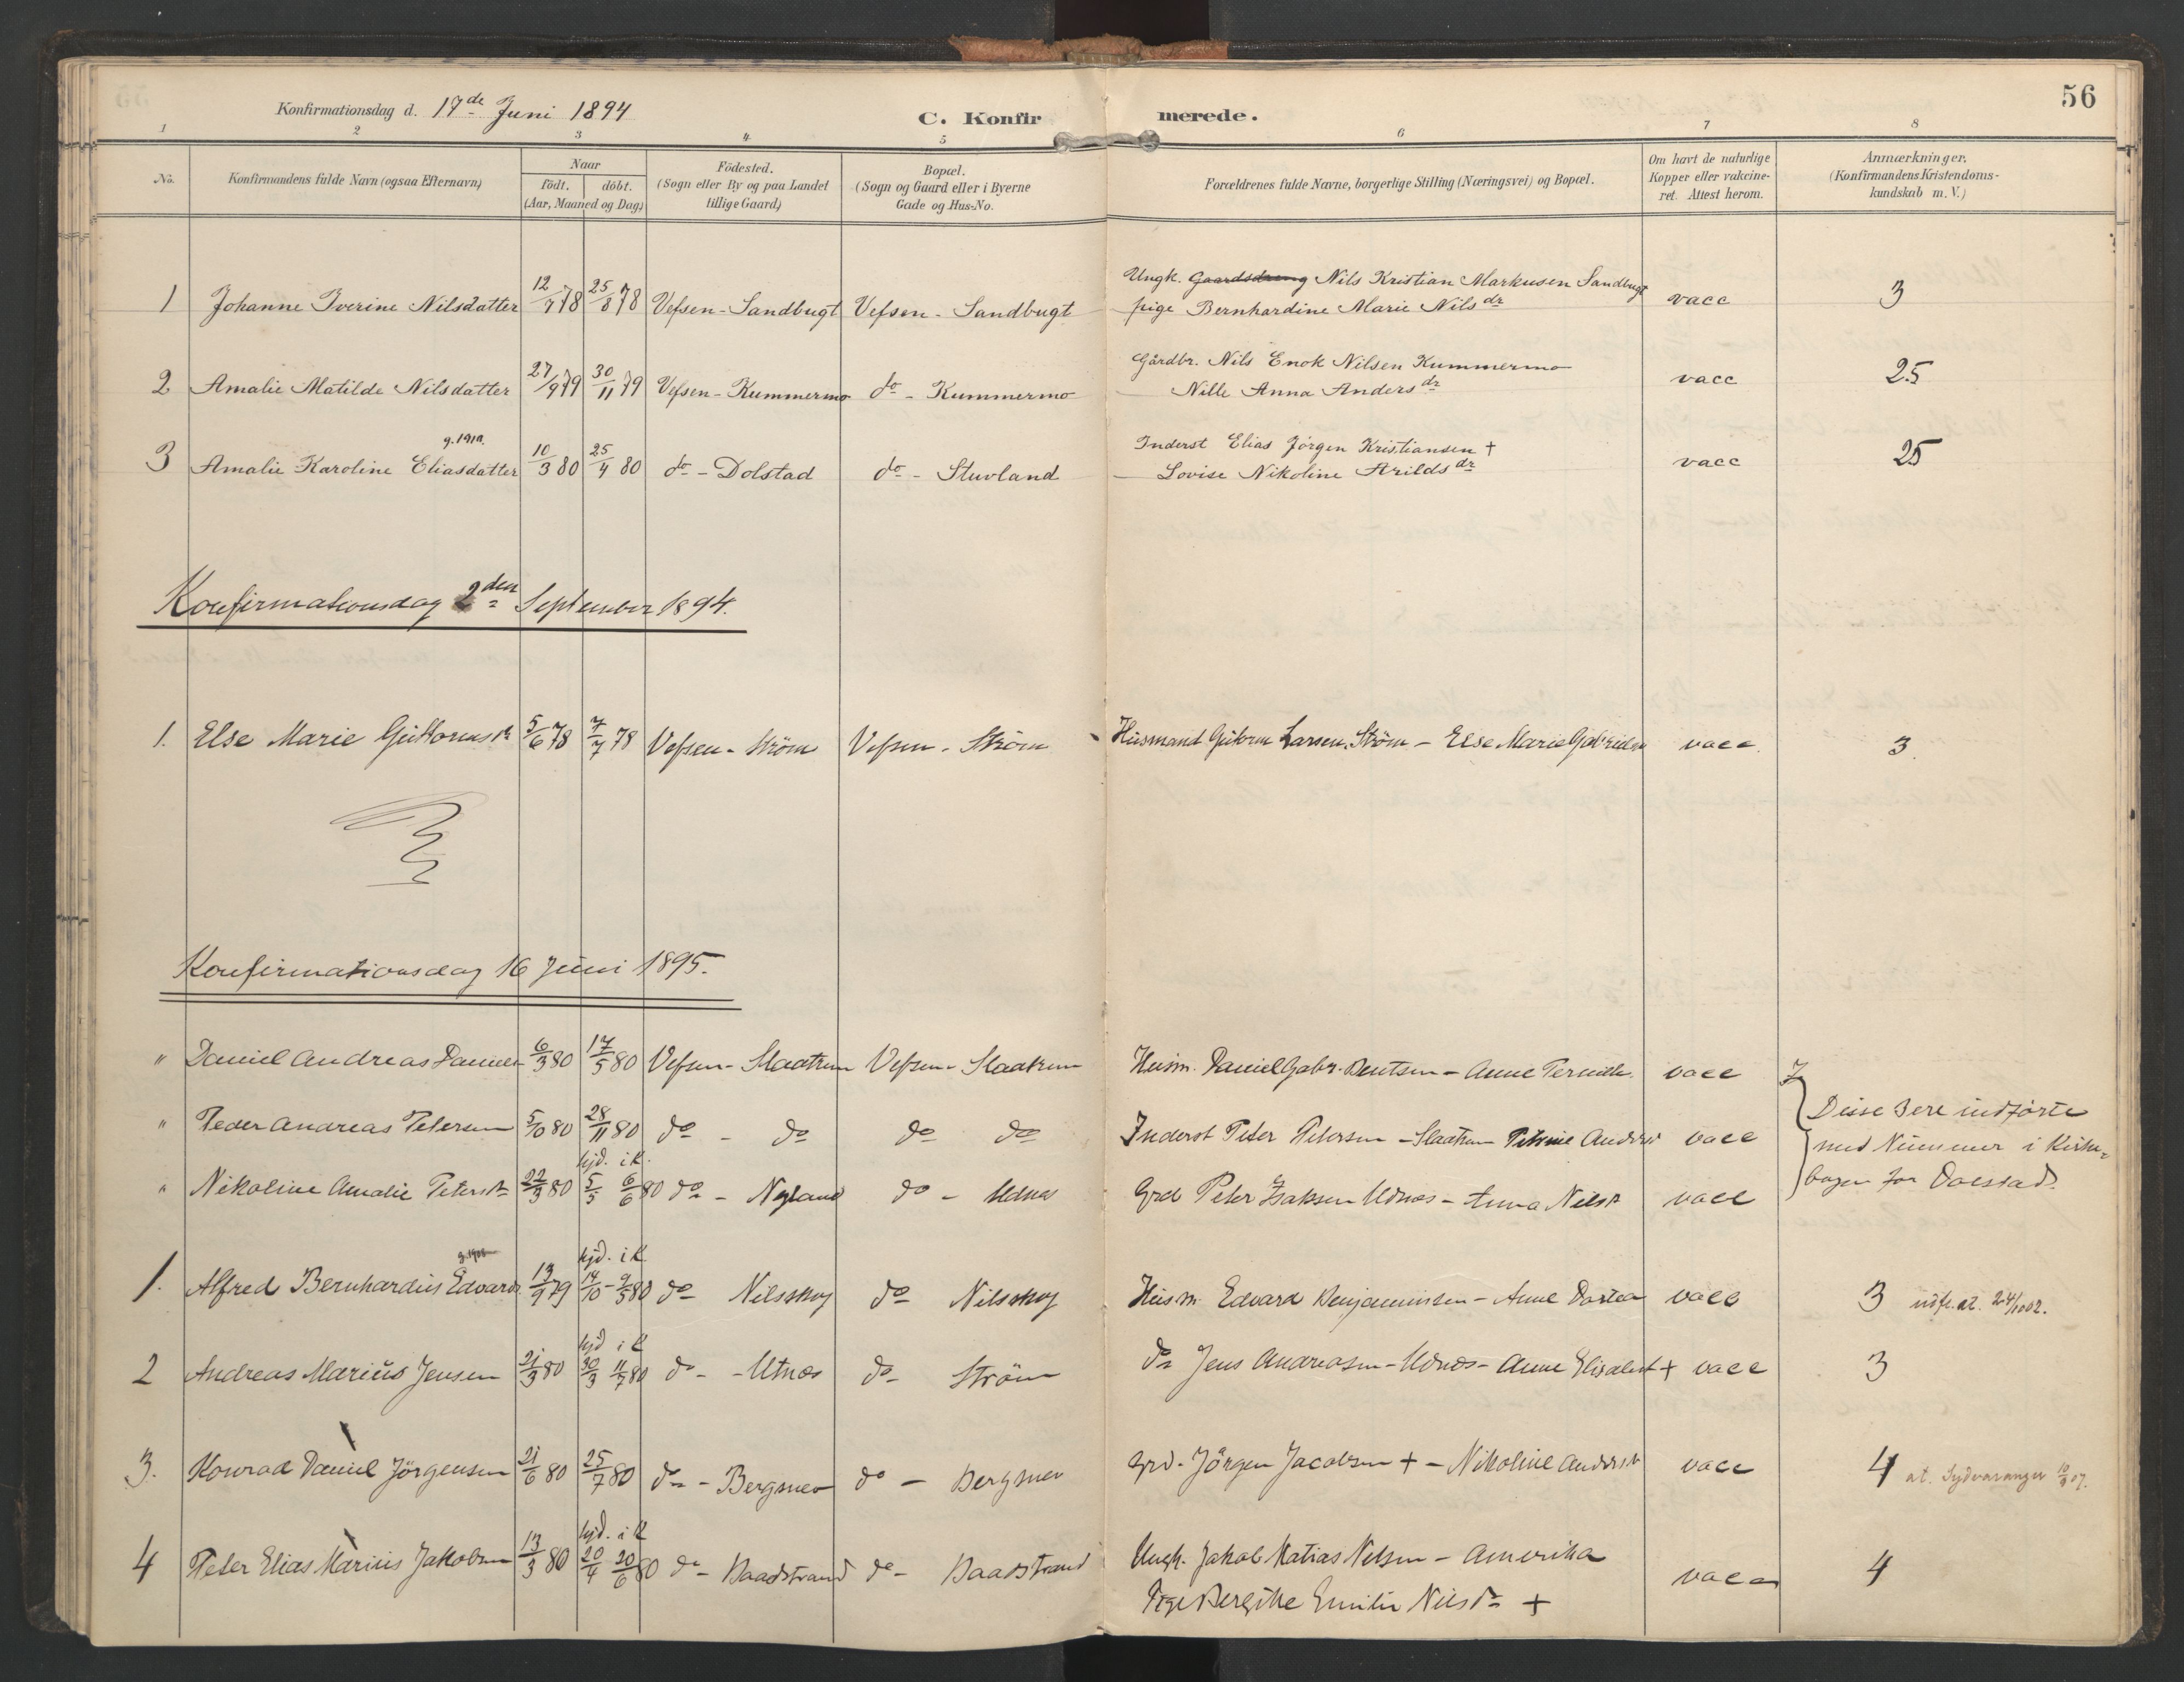 56
Konfirmationsdag d. 17de Juni 1894
C. Konfirmerede.
1 2 3 4 5 6 7 8
No. Konfirmandens fulde Navn (ogsaa Efternavn) Naar födt. döbt. (Aar, Maaned og Dag) Födested. (Sogn eller By og paa Landet tillige Gaard) Bopæl. (Sogn og Gaard eller i Byerne Gade og Hus-No. Forældrenes fulde Navne, borgerlige Stilling (Næringsvei) og Bopæl. Om havt de naturlige Kopper eller vakcineret. Attest herom. Anmærkninger. (Konfirmandens Kristendomskundskab m. V.)
Ungk. Gaardsdreng Nils Kristian Markusen Sandbugt
1 Johanne Iverine Nilsdatter 12/7 78 25/8 78 Vefsen - Sandbugt Vefsen - Sandbugt pige Bernhardine Marie Nilsdr vacc 3
Gårdbr. Nils Enok Nilsen Kummermo
2 Amalie Matilde Nilsdatter 27/9 79 30/11 79 Vefsen - Kummermo do - Kummermo Nille Anna Andersdr vacc 2.5
g. 1910. Inderst Elias Jörgen Kristiansen +
3 Amalie Karoline Eliasdatter 10/3 80 25/4 80 do - Dolstad do - Stuvland Lovise Nikoline Arildsdr vacc 25
Konfirmationsdag 2den September 1894.
1. Else Marie Guttormsdr 5/6 78 7/7 78 Vefsen - Ström Vefsen - Ström Husmand Gutorm Larsen, Ström - Else Marie vacc. 3.
Konfirmationsdag 16 Juni 1895.
" Daniel Andreas Daniels 6/3 80 17/5 80 Vefsen - Slaatrem Vefsen - Slaatrem Husm. Daniel Gabr. Bentsen - Anne vacc
" Peder Andreas Petersen 5/10 80 28/11 80 do - do do do Inderst Peter Petersen - Slaatrem Petrine Andersd vacc Disse 3 ere indförte
hjd. i K.
" Nikoline Amalie Petersdr 22/3 80 5/5 6/6 80 do - Nyland do - Udnes Grd Peter Isaksen Udnæs - Anna Nilsdr vacc med Nummer i Kirkebogen for Dolstad.
hjd. i K
1. Alfred Bernhardus Edvards 13/9 79 14/10 - 9/5 80 do Nilsskog do Nilsskog Husm. Edvard Benjaminsen - Anne Dortea vacc 3 udfr. at. 24/10 02.
hjd i K
2 Andreas Marius Jensen 21/3 80 30/3 11/7 80 do - Utnæs do - Ström do Jens Andreasen - Udnæs - Anne Elisabet + vacc 3
3. Konrad Daniel Jörgensen 21/6 80 25/7 80 do - Bergsnev do - Bergsnev Grd. Jörgen Jacobsen + - Nikoline Andersdr vacc 4 at. Sydvaranger 10/9 07.
hjd. i K
4 Peter Elias Marius Jakobsen 13/3 80 20/4 20/6 80 do - Baadstrand do - Baadstrand Ungk. Jakob Matias Nilsen - Amerika vacc 4
Pige Bergitte Emilie Nilsdr +